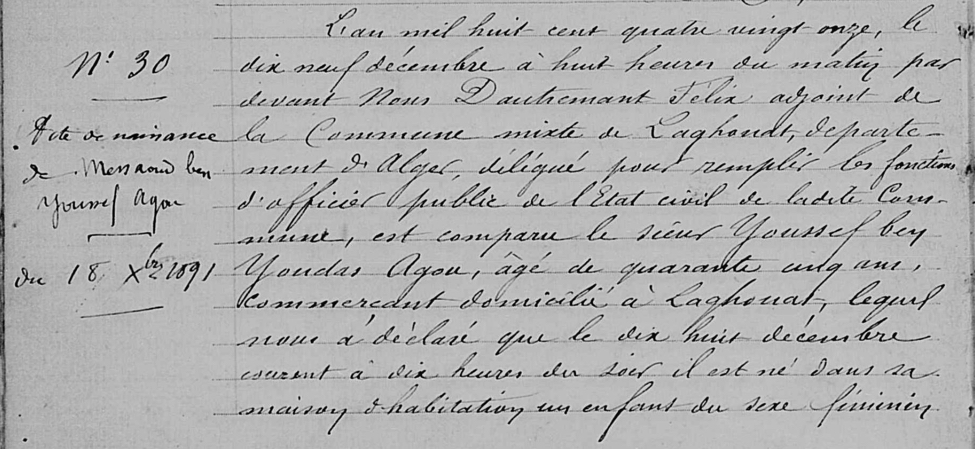 N° 30
Acte de naissance
de Messaoud ben
Youssef Agou
du 18 Xbre 1891
L'an mil huit cent quatre vingt onze, le
dix neuf décembre à huit heures du matin par
devant Nous Dautremant Félix adjoint de
la Commune mixte de Laghouat, departe-
ment d'Alger, délégué pour remplir les fonctions
d'officier public de l'Etat civil de ladite Com-
mune, est comparu le sieur Youssef ben
Youdas Agou, âgé de quarante cinq ans,
commercant domicilié à Laghouat, lequel
nous a déclaré que le dix huit décembre
courant à dix heures du soir il est né dans sa
maison d'habitation un enfant du sexe féminin